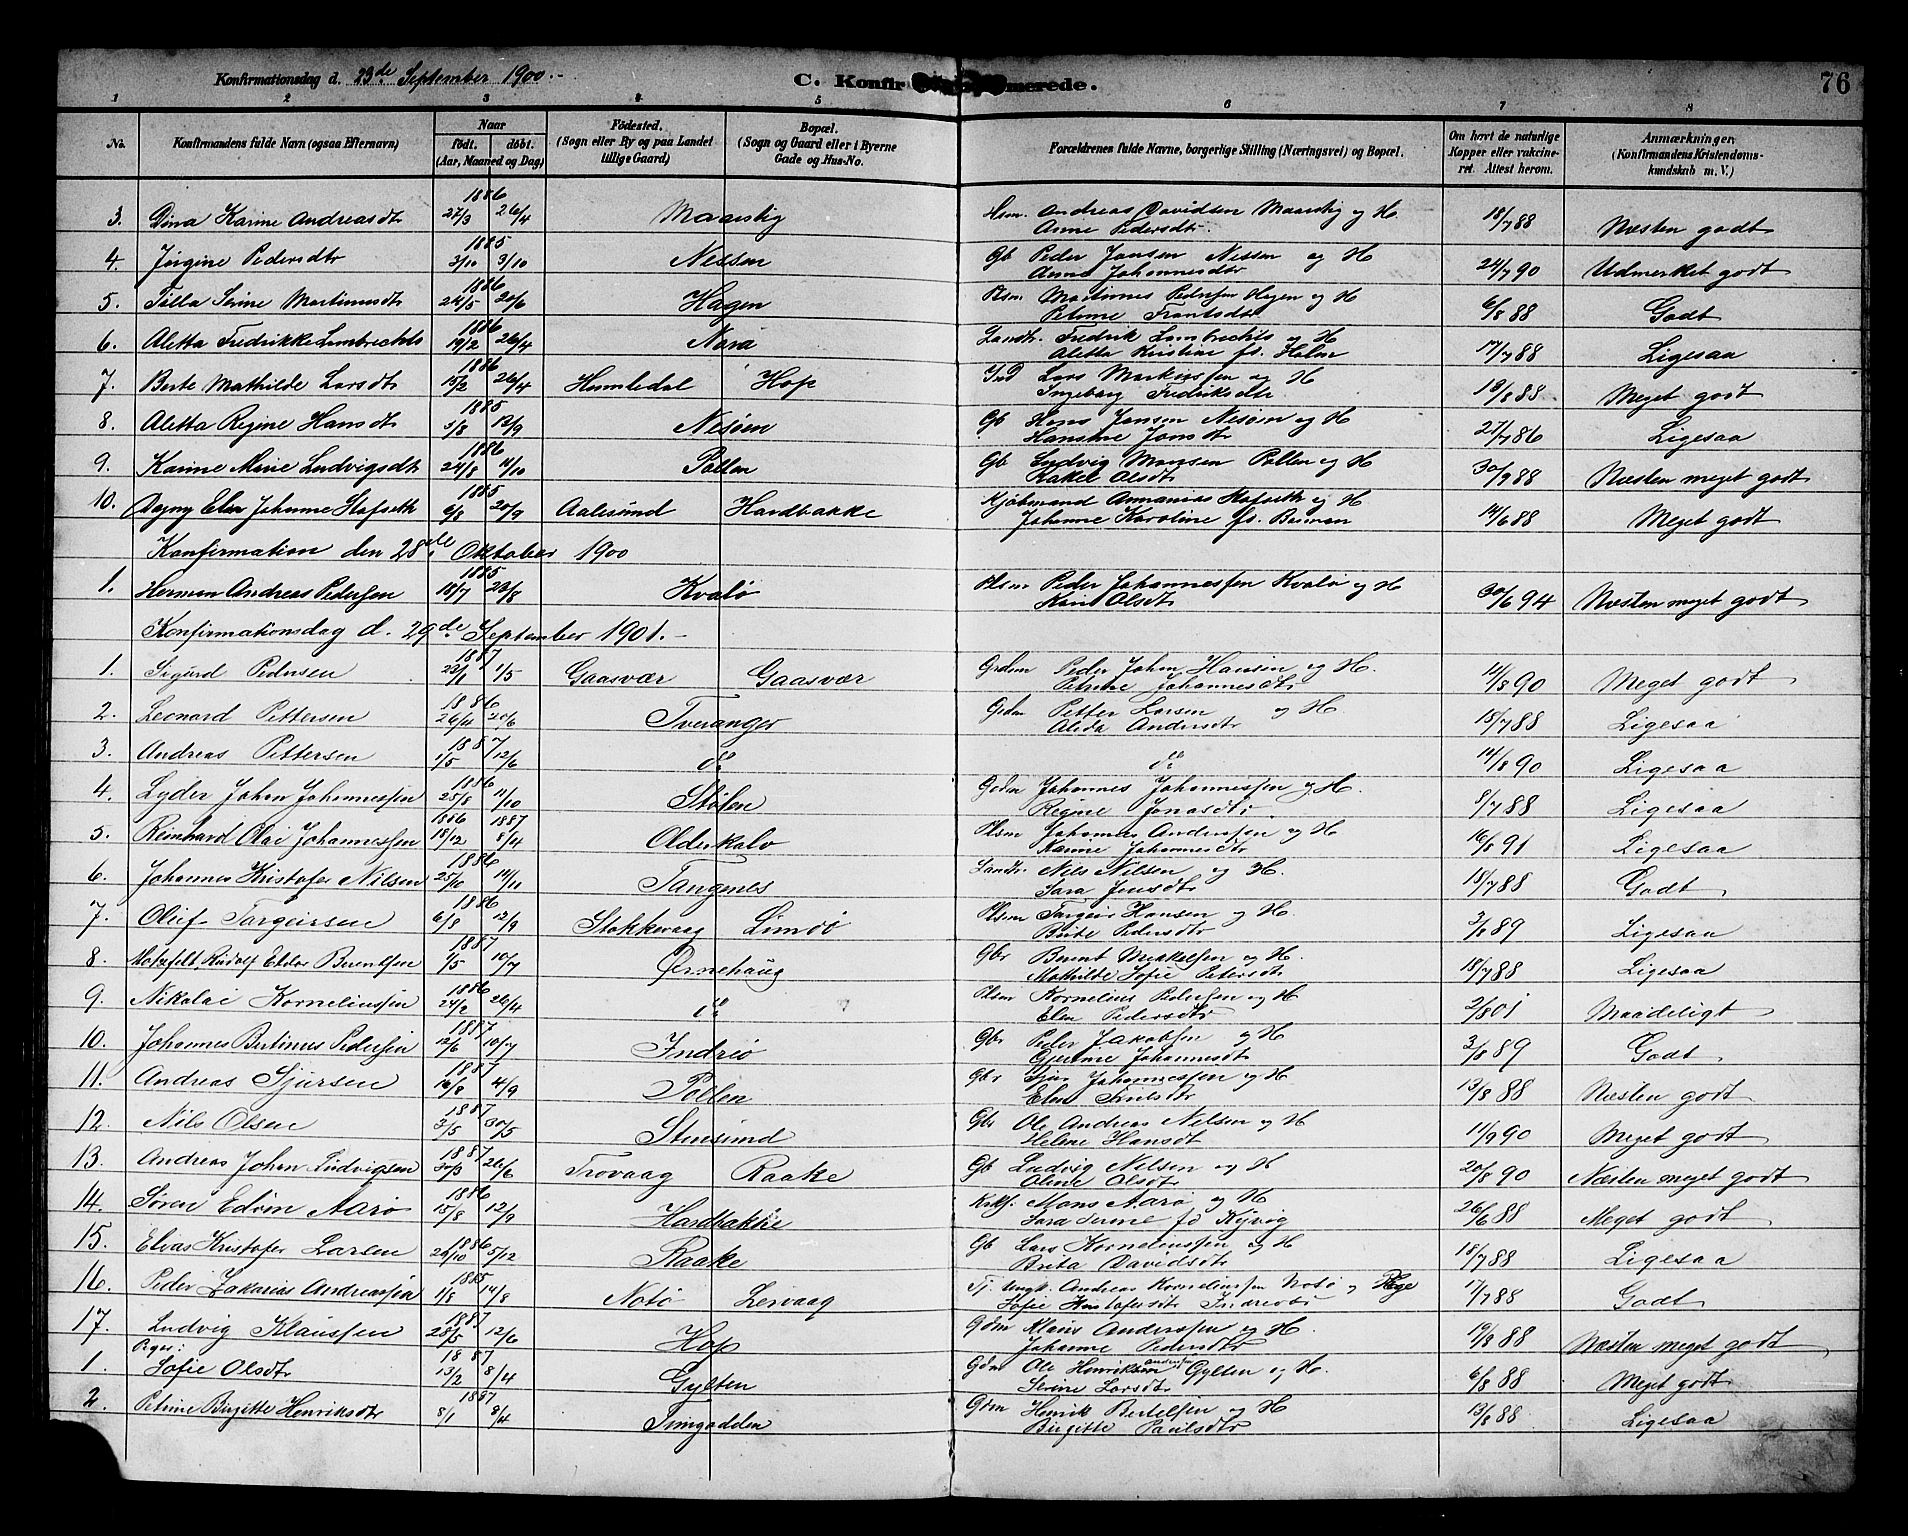 Konfirmationsdag d. 23de September 1900.- C. Konfir merede. 76
1 2 3 4 5 6 7 8
No. Konfirmandens fulde Navn (ogsaa Efternavn) Naar født. døbt. (Aar, Maaned og Dag) Fødested. (Sogn eller By og paa Landet tillige Gaard) Bopæl. (Sogn og Gaard eller i Byerne Gade og Hus-No. Forældrenes fulde Navne, borgerlige Stilling (Næringsvei) og Bopæl. Om havt de naturlige Kopper eller vakcineret. Attest herom. Anmærkninger. (Konfirmandens Kristendomskundskab m. V.)
1886
3. Dina Karine Andreasdtr 27/3 26/4 Maarstig Hsm. Andreas Davidsen Maarstig og H 18/7 88 Næsten godt
Anne Pedersdtr.
1885
4. Jørgine Pedersdtr 3/10 3/10 Nessen Gb Peder Jansen Nessen og H 24/7 90 Udmerket godt
Anna Johannesdtr
1886
5. Serine Martinusdtr 24/5 20/6 Hagen Plsm Martinus Pedersen Hagen og H 6/8 88 Godt
Petrine Frantsdtr
1886
6. Aletta Fredrikke Lambrechts 19/2 26/4 Nara Landh. Fredrik Lambrechts og H 17/7 88 Ligesaa
Aletta Kristine fs. Holm
1886
7. Berte Mathilde Larsdtr 15/2 26/4 Humledal Hop Ind Lars Markussen og H 19/8 88 Meget godt
Ingeborg Fredriksdtr
1885
8. Aletta Regine Hansdtr 3/8 12/9 Nesøen Gb Hans Jansen Nesøen og H 27/7 86 Ligesaa
Hansine Jonsdtr
1886
9. Karine Marie Ludvigsdtr 24/8 4/10 Pollen Gb Ludvig Monsen Pollen og H 30/9 88 Næsten meget godt
Rakel Olsdtr
1885
10. Dagny Elen Johanne Hafseth 6/8 20/9 Aalesund Hardbakke Kjøbmand Annanias Hafseth og H 14/6 88 Meget godt
Johanne Karoline fs. Bauman
Konfirmation den 28de Oktober 1900
1885
1. Herman Andreas Pedersen 18/7 23/8 Kvalø Plsm Peder Johannessen Kvalø og H 30/6 94 Næsten meget godt
Kari Olsdtr
Konfirmationsdag d. 29de September 1901.-
1887
1. Sigurd Pedersen 22/1 1/5 Gaasvær Gaasvær Grdm Peder Johan Hansen og H. 14/8 90 Meget godt
Petrine Johannesdtr
1886
2. Leonard Pettersen 26/4 20/6 Tveranger Grdm Petter Larsen og H 18/7 88 Ligesaa
Alida Andersdtr
1887
3. Andreas Pettersen 1/5 12/6 do do 14/8 90 Ligesaa
1886
4. Lyder Johan Johannessen 25/8 11/10 Stølen Gdm Johannes Johannessen og H. 8/7 88 Ligesaa
Regine Jonasdtr
1886 1887
5. Reinhard Olai Johannessen 18/12 8/4 Olderkalv Plsm Johannes Anderssen og H 16/8 91 Ligesaa
Karine Johannesdtr
1886
6. Johannes Kristofer Nilsen 25/10 14/11 Tangenes Landh. Nils Nilsen og H. 18/7 88 Godt
Sara Jensdtr
1886
7. Oluf Torgeirsen 6/8 12/9 Stokkevaag Limdø Plsm Torgeir Hansen og H. 3/8 89 Ligesaa
Brite Pedersdtr
1887
8. Motzfelt, Rudolf Berentsen 1/5 10/7 Ørnehaug Gbr Berent Mikkelsen og H. 18/7 88 Ligesaa
Mathilde Sofie Petersdtr
1886
9. Nikolai Korneliussen 24/2 26/4 do Plsm Kornelius Pedersen og H 2/8 01 Maadeligt
Elen Pedersdtr
1887
10. Johannes Bertinus Pedersen 12/6 10/7 Indrø Gbr Peder Jakobsen og H 3/8 89 Godt
Gjertine Johannesdtr
1887
11. Andreas Sjursen 16/8 4/9 Pollen Gbr Sjur Johannessen og H 13/8 88 Næsten godt
Elen
1887
12. Nils Olsen 3/5 30/5 Stensund Gbr Ole Andreas Nilsen og H 11/9 90 Meget godt
Helene Hansdtr
1887
13. Andreas Johan Ludvigsen 20/3 26/6 Trovaag Raake Gb Ludvig Nilsen og H 20/8 90 Næsten meget godt
Oline Olsdtr
1886
14. Søren Edvin Aarø 15/8 12/9 Hardbakke Krkf. Mons Aarø og H 26/6 88 Meget godt
Sara Serine fd Kyvig
1886
15. Elias Kristofer Larsen 26/10 5/12 Raake Gb Lars Korneliussen og H 18/7 88 Ligesaa
Brita Davidsdtr
1885
16. Peder Zakarias Andreassen 1/8 14/8 Notø Lervaag Tj. Ungk. Andreas Korneliussen Notø og Pige 17/7 88 Godt
Sofie Kristofersdtr Indrebø
1887
17. Ludvig Klaussen 28/5 12/6 Hop Gdm Klaus Anderssen og H. 19/8 88 Næsten meget godt
Johanne Pedersdtr
Piger:
1887
1. Sofie Olsdtr 13/2 8/4 Gylten Gdm Ole Henriksen Anderssen Gylten og H. 6/8 88 Meget godt
Serine Larsdtr
1887
2. Petrine Birgitte Henriksdtr 8/1 8/4 Tungodden Gdm Henrik Bertelsen og H 13/8 88 Ligesaa
Birgitte Paulsdtr